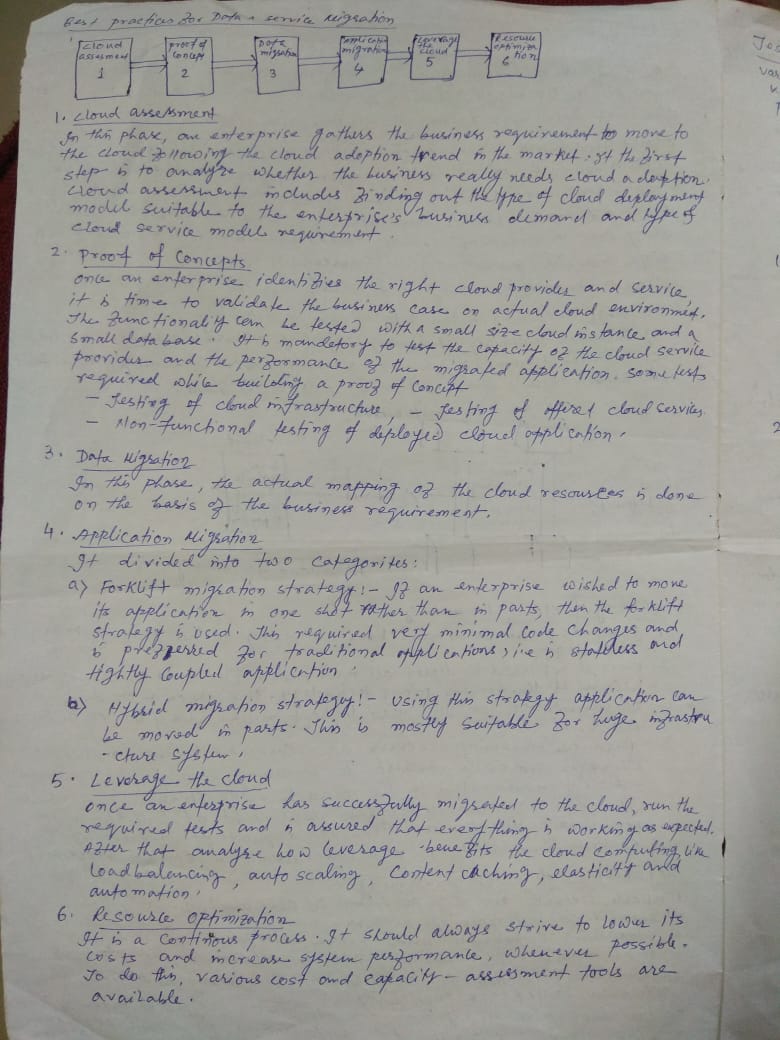 Best practices for Data & service Migration
cloud assessment 1
proof of concept 2
Data migration 3
Application migration 4
Leverage the cloud 5
Resource optimization 6
1. Cloud assessment
In this phase, an enterprise gathers the business requirement to move to
the cloud following the cloud adoption trend in the market. It the first
step is to analyze whether the business really needs cloud adoption.
Cloud assessment includes finding out the type of cloud deployment
model suitable to the enterprise's business demand and type of
cloud service models requirement.
2. Proof of Concepts
once an enterprise identifies the right cloud provider and service,
it is time to validate the business case on actual cloud environment.
The functionality can be tested with a small size cloud instance and a
small database. It is mandetory to test the capacity of the cloud service
provider and the performance of the migrated application. Some tests
required while building a proof of concept
- Testing of cloud infrastructure, - Testing of offered cloud services
- Non-functional testing of deployed cloud application.
3. Data Migration
In this phase, the actual mapping of the cloud resources is done
on the basis of the business requirement.
4. Application Migration
It divided into two categorites:
a) Forklift migration strategy:- If an enterprise wished to move
its application in one shot rather than in parts, then the forklift
strategy is used. This required very minimal code changes and
is preferred for traditional applications, i.e is stateless and
tightly coupled application.
b) Hybrid migration strategy:- Using this strategy application can
be moved in parts. This is mostly suitable for huge infrastru
-cture system.
5. Leverage the cloud
once an enterprise has successfully migrated to the cloud, run the
required tests and is assured that everything is working as expected.
After that analyze how leverage benefits the cloud computing, like
Load balancing, auto scaling, content caching, elasticity and
automation.
6. Resource optimization
It is a continous process. It should always strive to lower its
costs and increase system performance, whenever possible.
To do this, various cost and capacity-assessment tools are
available.